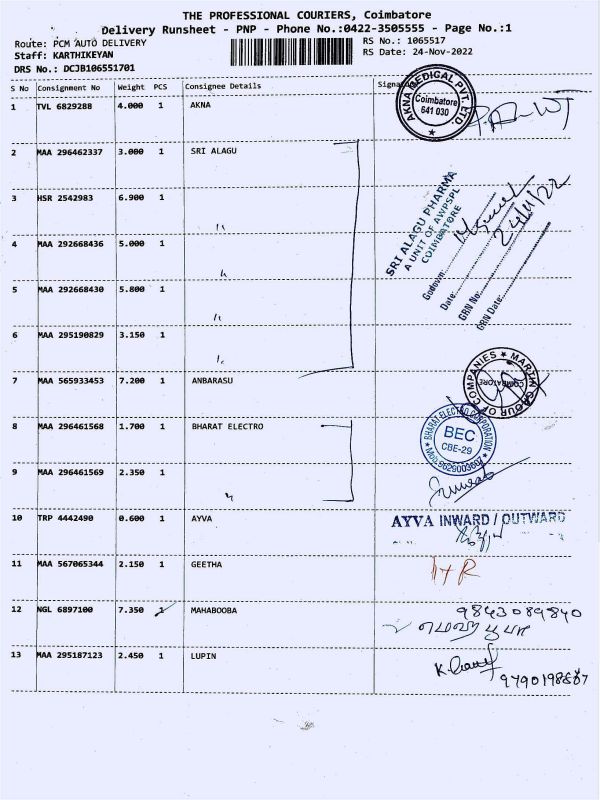 THE PROFESSIONAL COURIERS, Coimbatore
Delivery Runsheet - PNP - Phone No.:0422-3505555 - Page No.:1
Route: PCM AUTO DELIVERY
RS No.: 1065517
Staff: KARTHIKEYAN
RS Date: 24-Nov-2022
DRS No.: DCJB106551701
S No Consignment No Weight PCS Consignee Details
1 TVL 6829288 4.000 1 AKNA
AKNA MEDICAL PVT. LTD.
Coimbatore
641 030
2 MAA 296462337 3.000 1 SRI ALAGU
3 HSR 2542983 6.900 1
SRI ALAGU PHARMA
A UNIT OF AWPSPL
COIMBATORE
Godown:
Date: 24/11/22
GRN No:
GRN Date:
4 MAA 292668436 5.000 1
5 MAA 292668430 5.800 1
6 MAA 295190829 3.150 1
7 MAA 565933453 7.200 1 ANBARASU
MARTIN GROUP OF COMPANIES
COIMBATORE
8 MAA 296461568 1.700 1 BHARAT ELECTRO
BHARAT ELECTRO CORPORATION
BEC
CBE-29
Mob:9629003607
9 MAA 296461569 2.350 1
10 TRP 4442490 0.600 1 AYVA
AYVA INWARD / OUTWARD
11 MAA 567065344 2.150 1 GEETHA
12 NGL 6897100 7.350 1 MAHABOOBA
9843089840
மெஹபூபா
13 MAA 295187123 2.450 1 LUPIN
9790198887